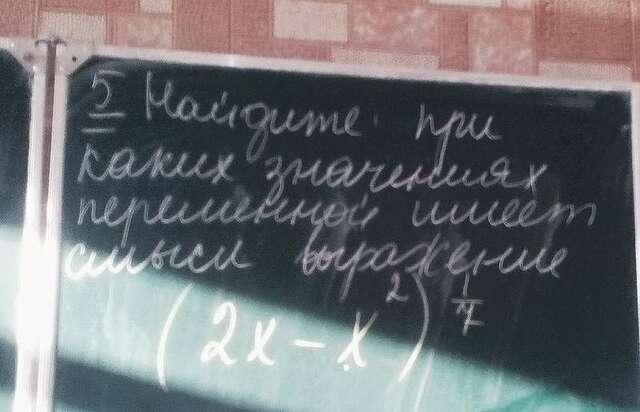 5 Найдите при
каких значениях
переменной имеет
смысл выражение
(2x - x²)^(1/7)